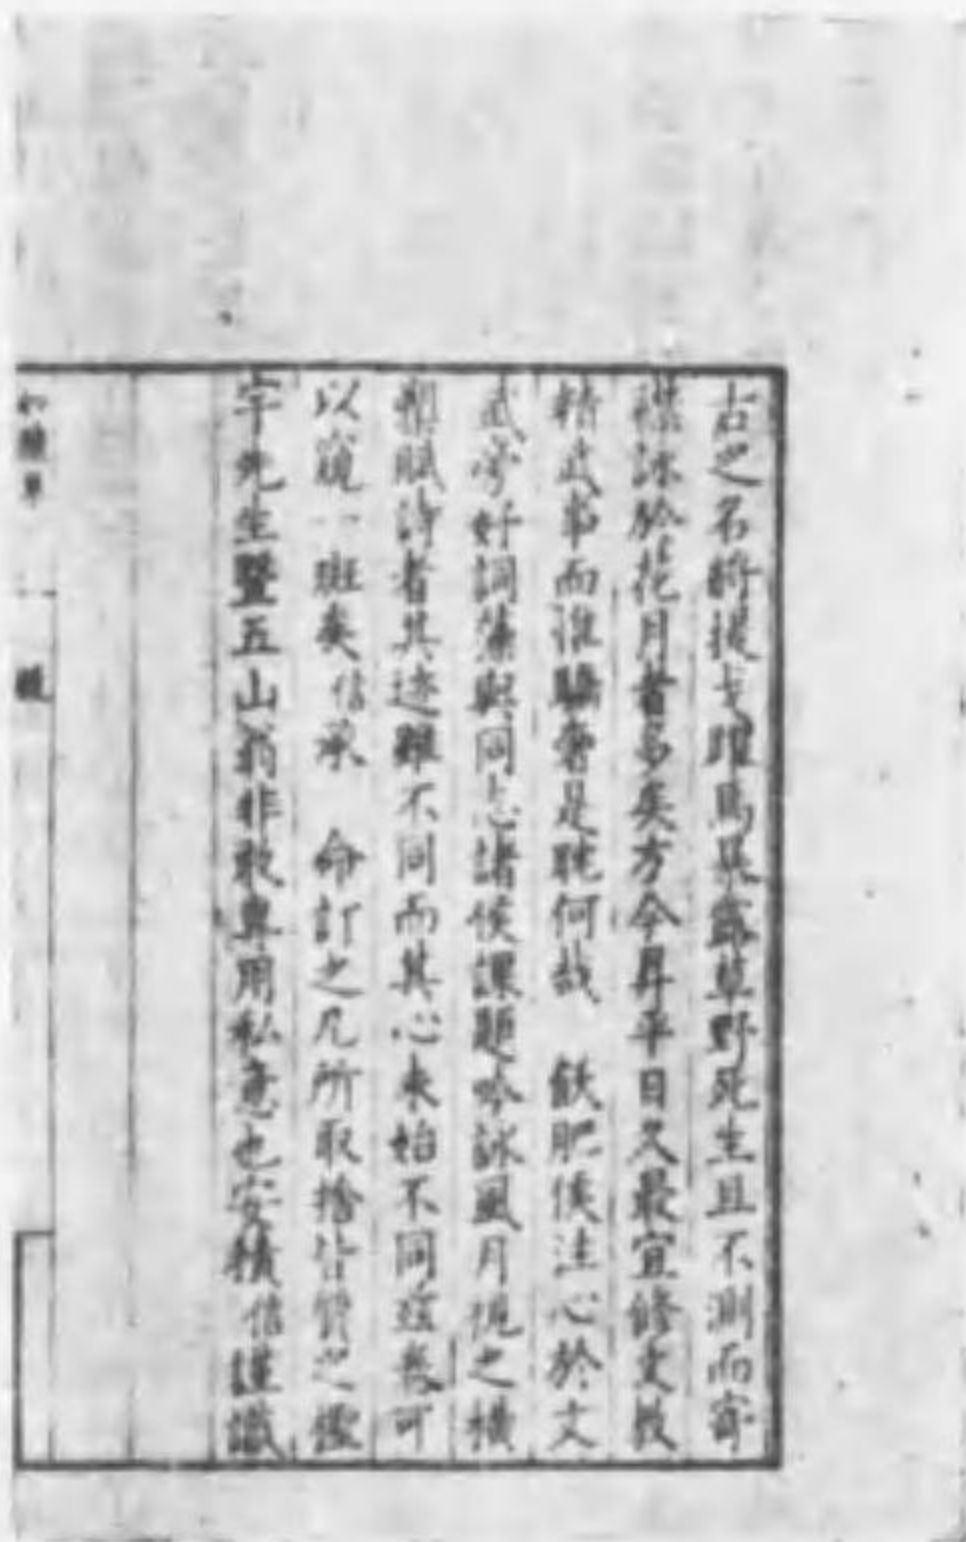 古之名將提戈躍馬暴露草野死生且不測而寄
襟詠於花月者多矣方今昇平日久最宜修文教
精武事而淮驕奢是耽何哉　飫肥侯注心於文
武旁好詞藻與同志諸侯課題吟詠風月視之橫
槊賦詩者其迹雖不同而其心未始不同茲卷可
以窺一斑矣信承　命訂之凡所取捨皆質之檉
宇先生曁五山翁非敢專用私意也安積信謹識